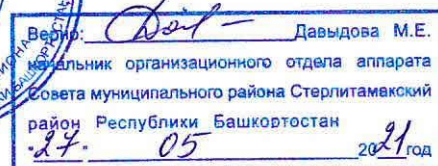 Верно: Давыдова М.Е.
начальник организационного отдела аппарата
Совета муниципального района Стерлитамакский
район Республики Башкортостан
"27" 05 2021 год